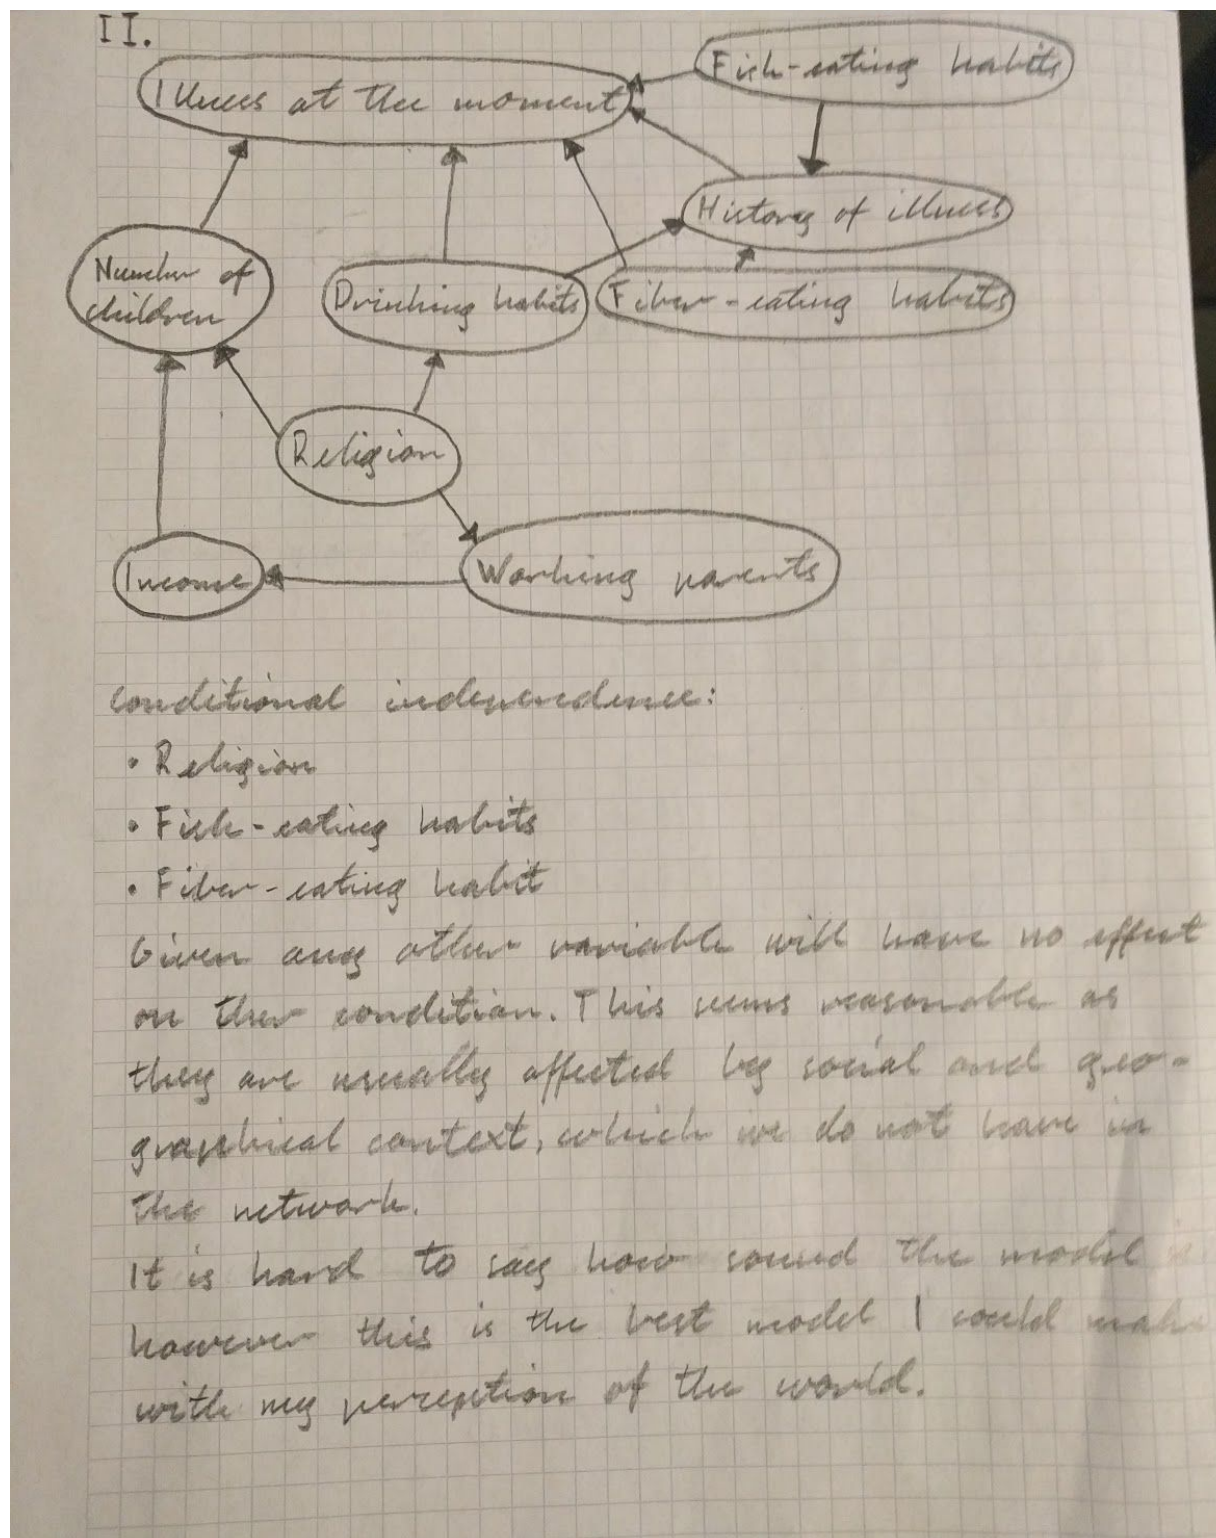 II.
Fish-eating habits
Illness at the moment
History of illness
Number of
children
Drinking habits
Fiber-eating habits
Religion
Income
Working parents
Conditional independence:
• Religion
• Fish-eating habits
• Fiber-eating habit
Given any other variable will have no effect
on their condition. This seems reasonable as
they are usually affected by social and geo-
graphical context, which we do not have in
the network.
It is hard to say how sound the model is
however this is the best model I could make
with my perception of the world.